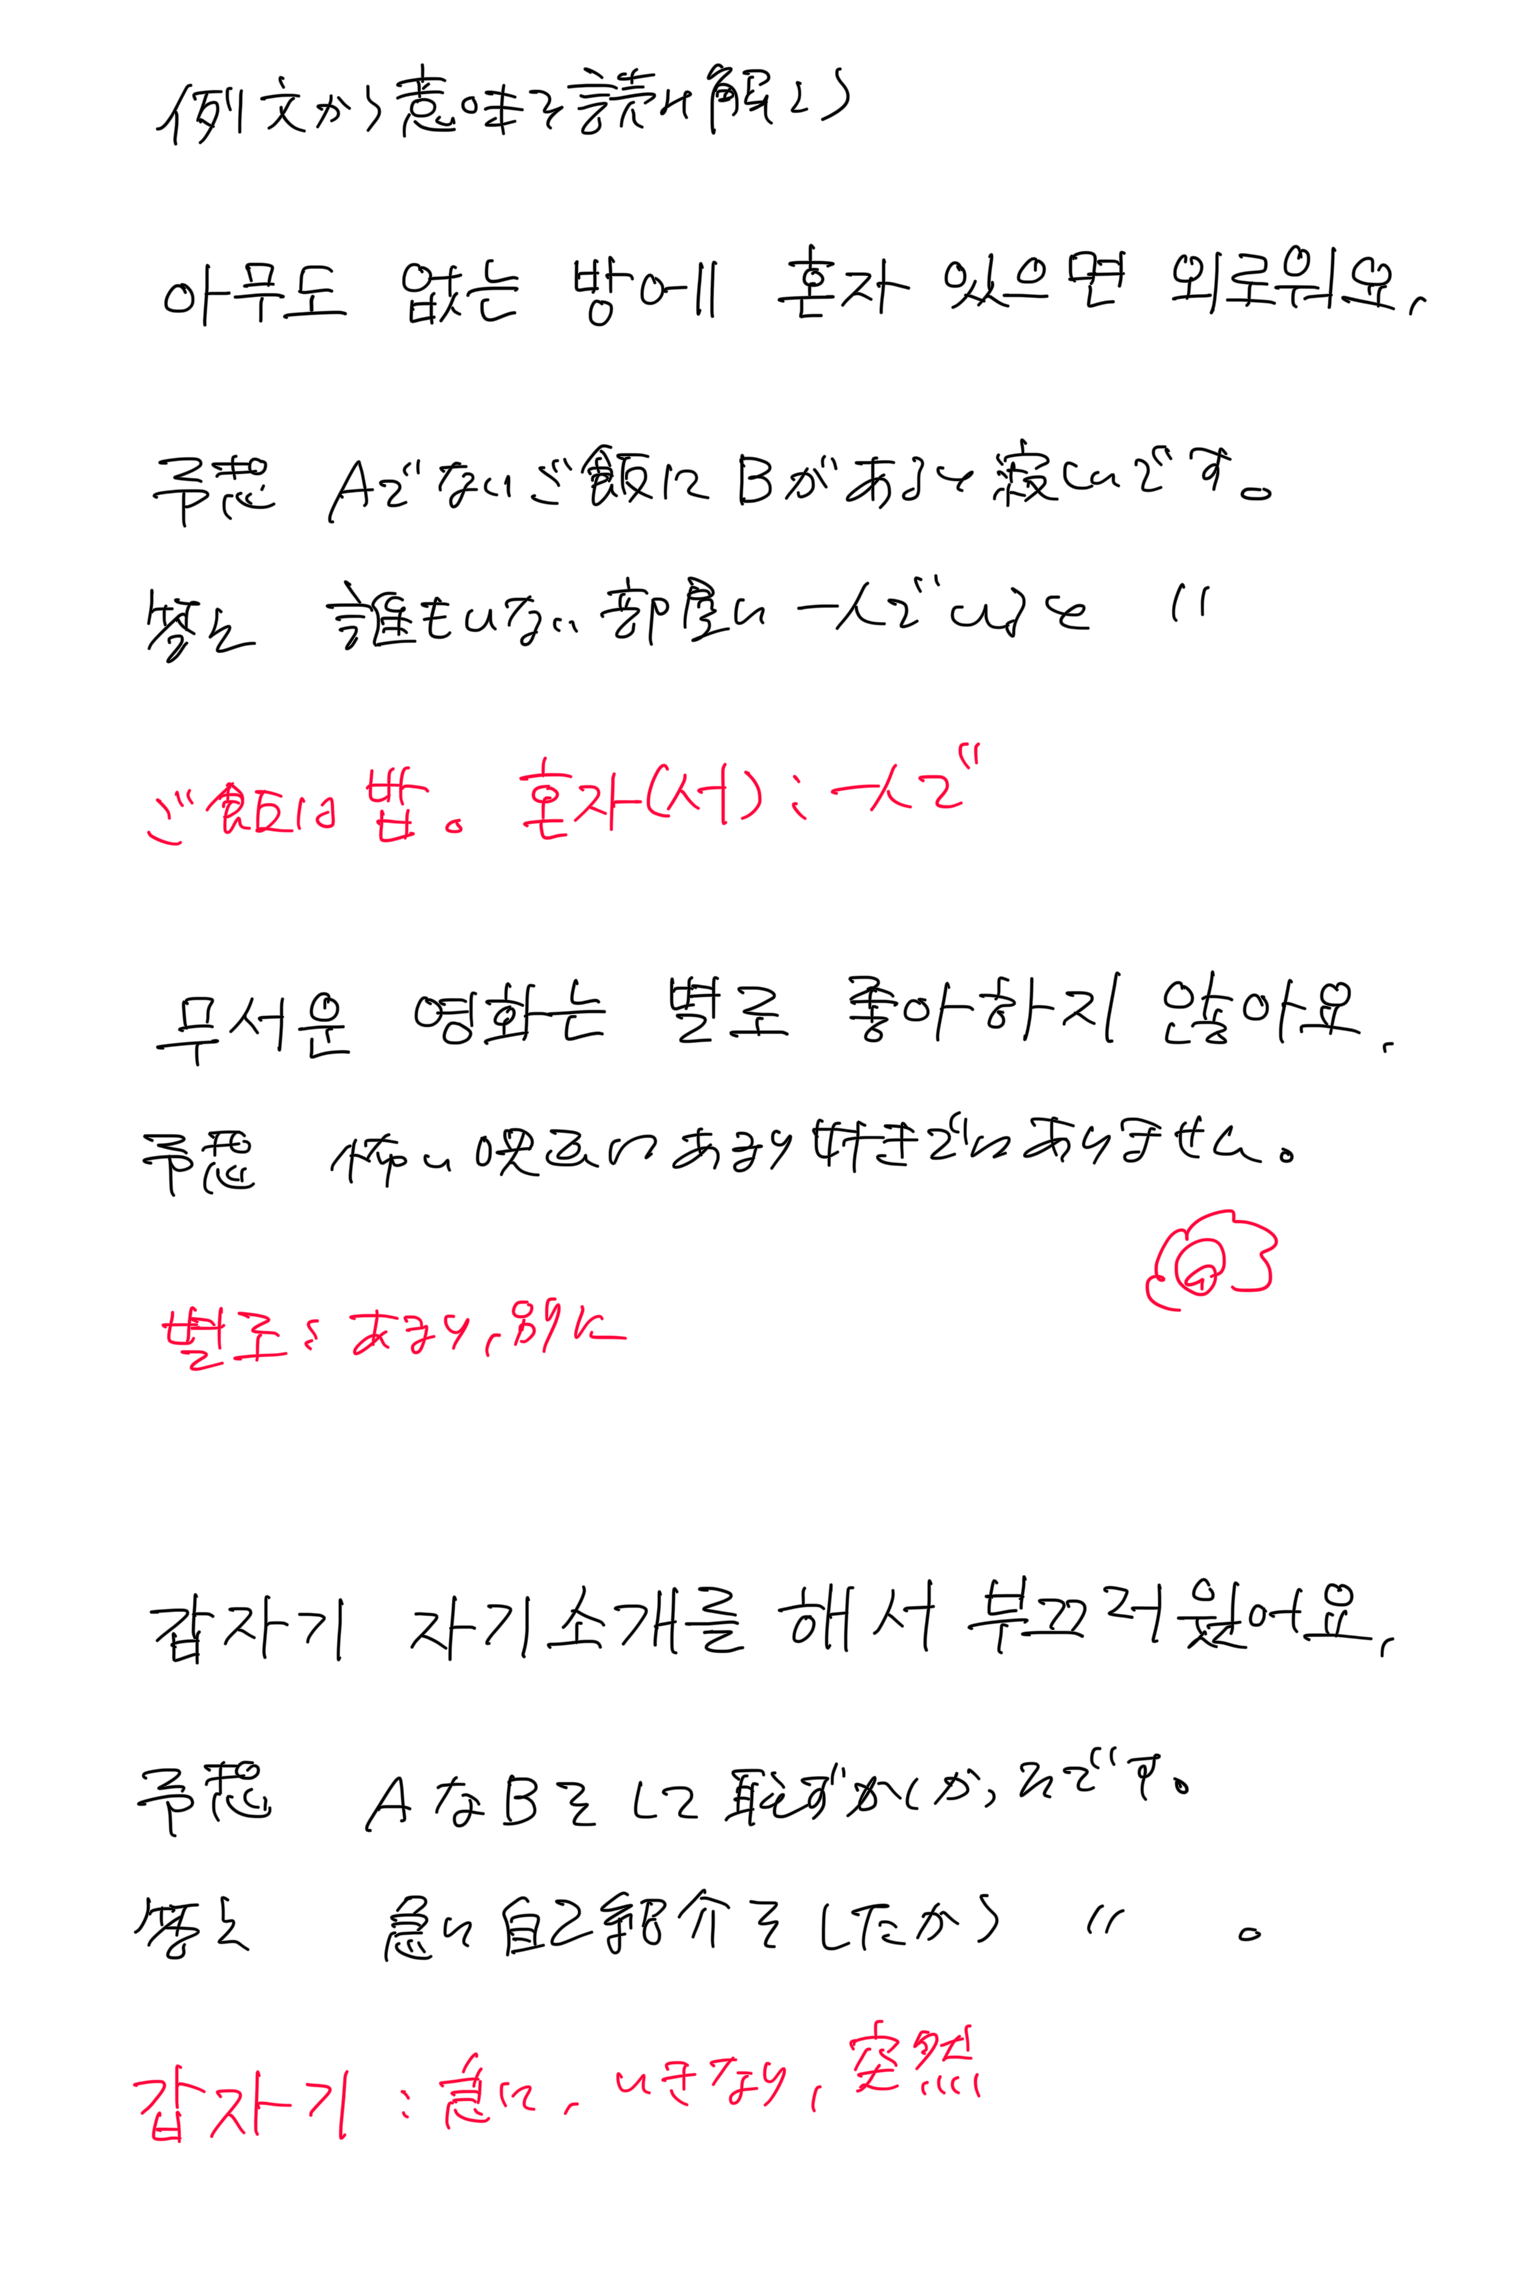 例文から意味を読み解こう
아무도 없는 방에 혼자 있으면 외로워요.
予想 Aでないご飯にBがあると寂しいです。
答え 誰もいない部屋に一人でいると 〃
ご飯は밥。 혼자(서):一人で
무서운 영화는 별로 좋아하지 않아요.
予想 怖い映画はあまり好きではありません。
별로:あまり,別に
갑자기 자기소개를 해서 부끄러웠어요.
予想 AなBをして恥ずかしかったです。
答え 急に自己紹介をしたから 〃 。
갑자기:急に,いきなり,突然